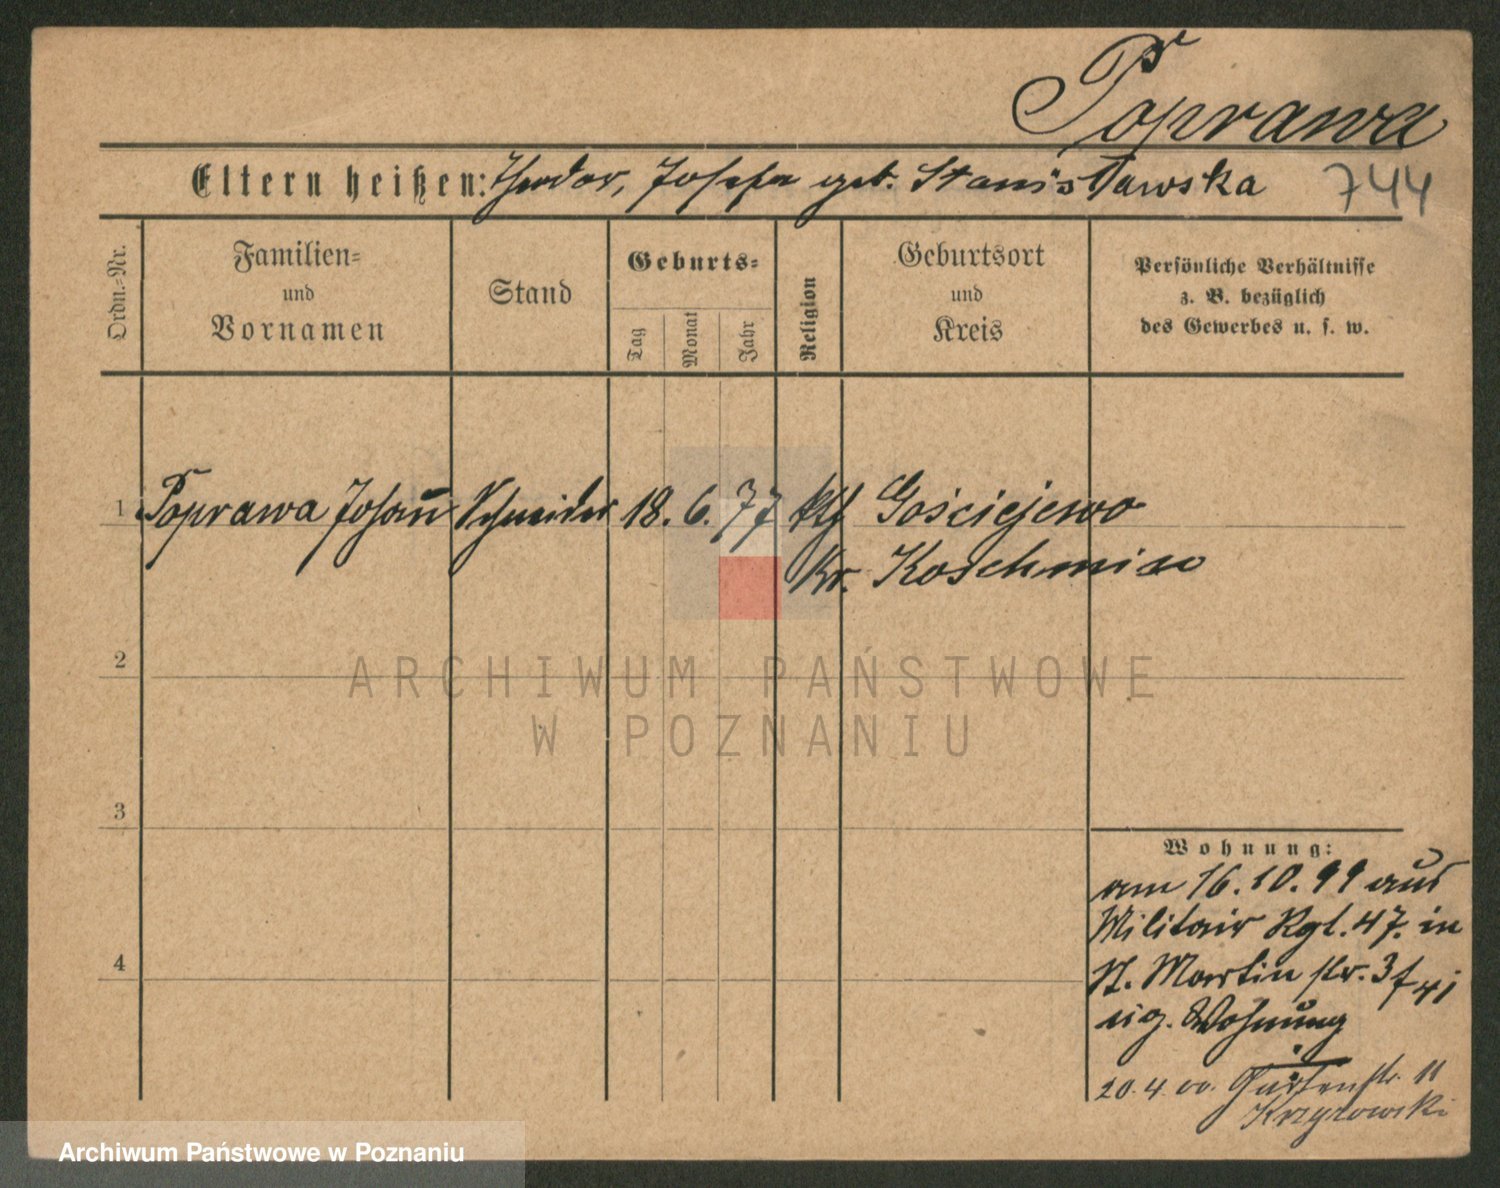 Poprawa
Eltern heißen: Theodor, Josefa geb. Stanisławska 744
Ordn.-Nr.
Familien- und Vornamen
Stand
Geburts-
Tag Monat Jahr
Religion
Geburtsort und Kreis
Persönliche Verhältnisse
z. B. bezüglich
des Gewerbes u. s. w.
1 Poprawa Johan̄ Schneider 18. 6. 77 kth Gościejewo
Kr. Koschmin
2
ARCHIWUM PAŃSTWOWE
W POZNANIU
3
Wohnung:
am 16.10.99 aus
Militair Rgt. 47. in
St. Martin str. 3
4
eig. Wohnung
20.4.00. Gartenstr. 11
Krzyzowski
Archiwum Państwowe w Poznaniu